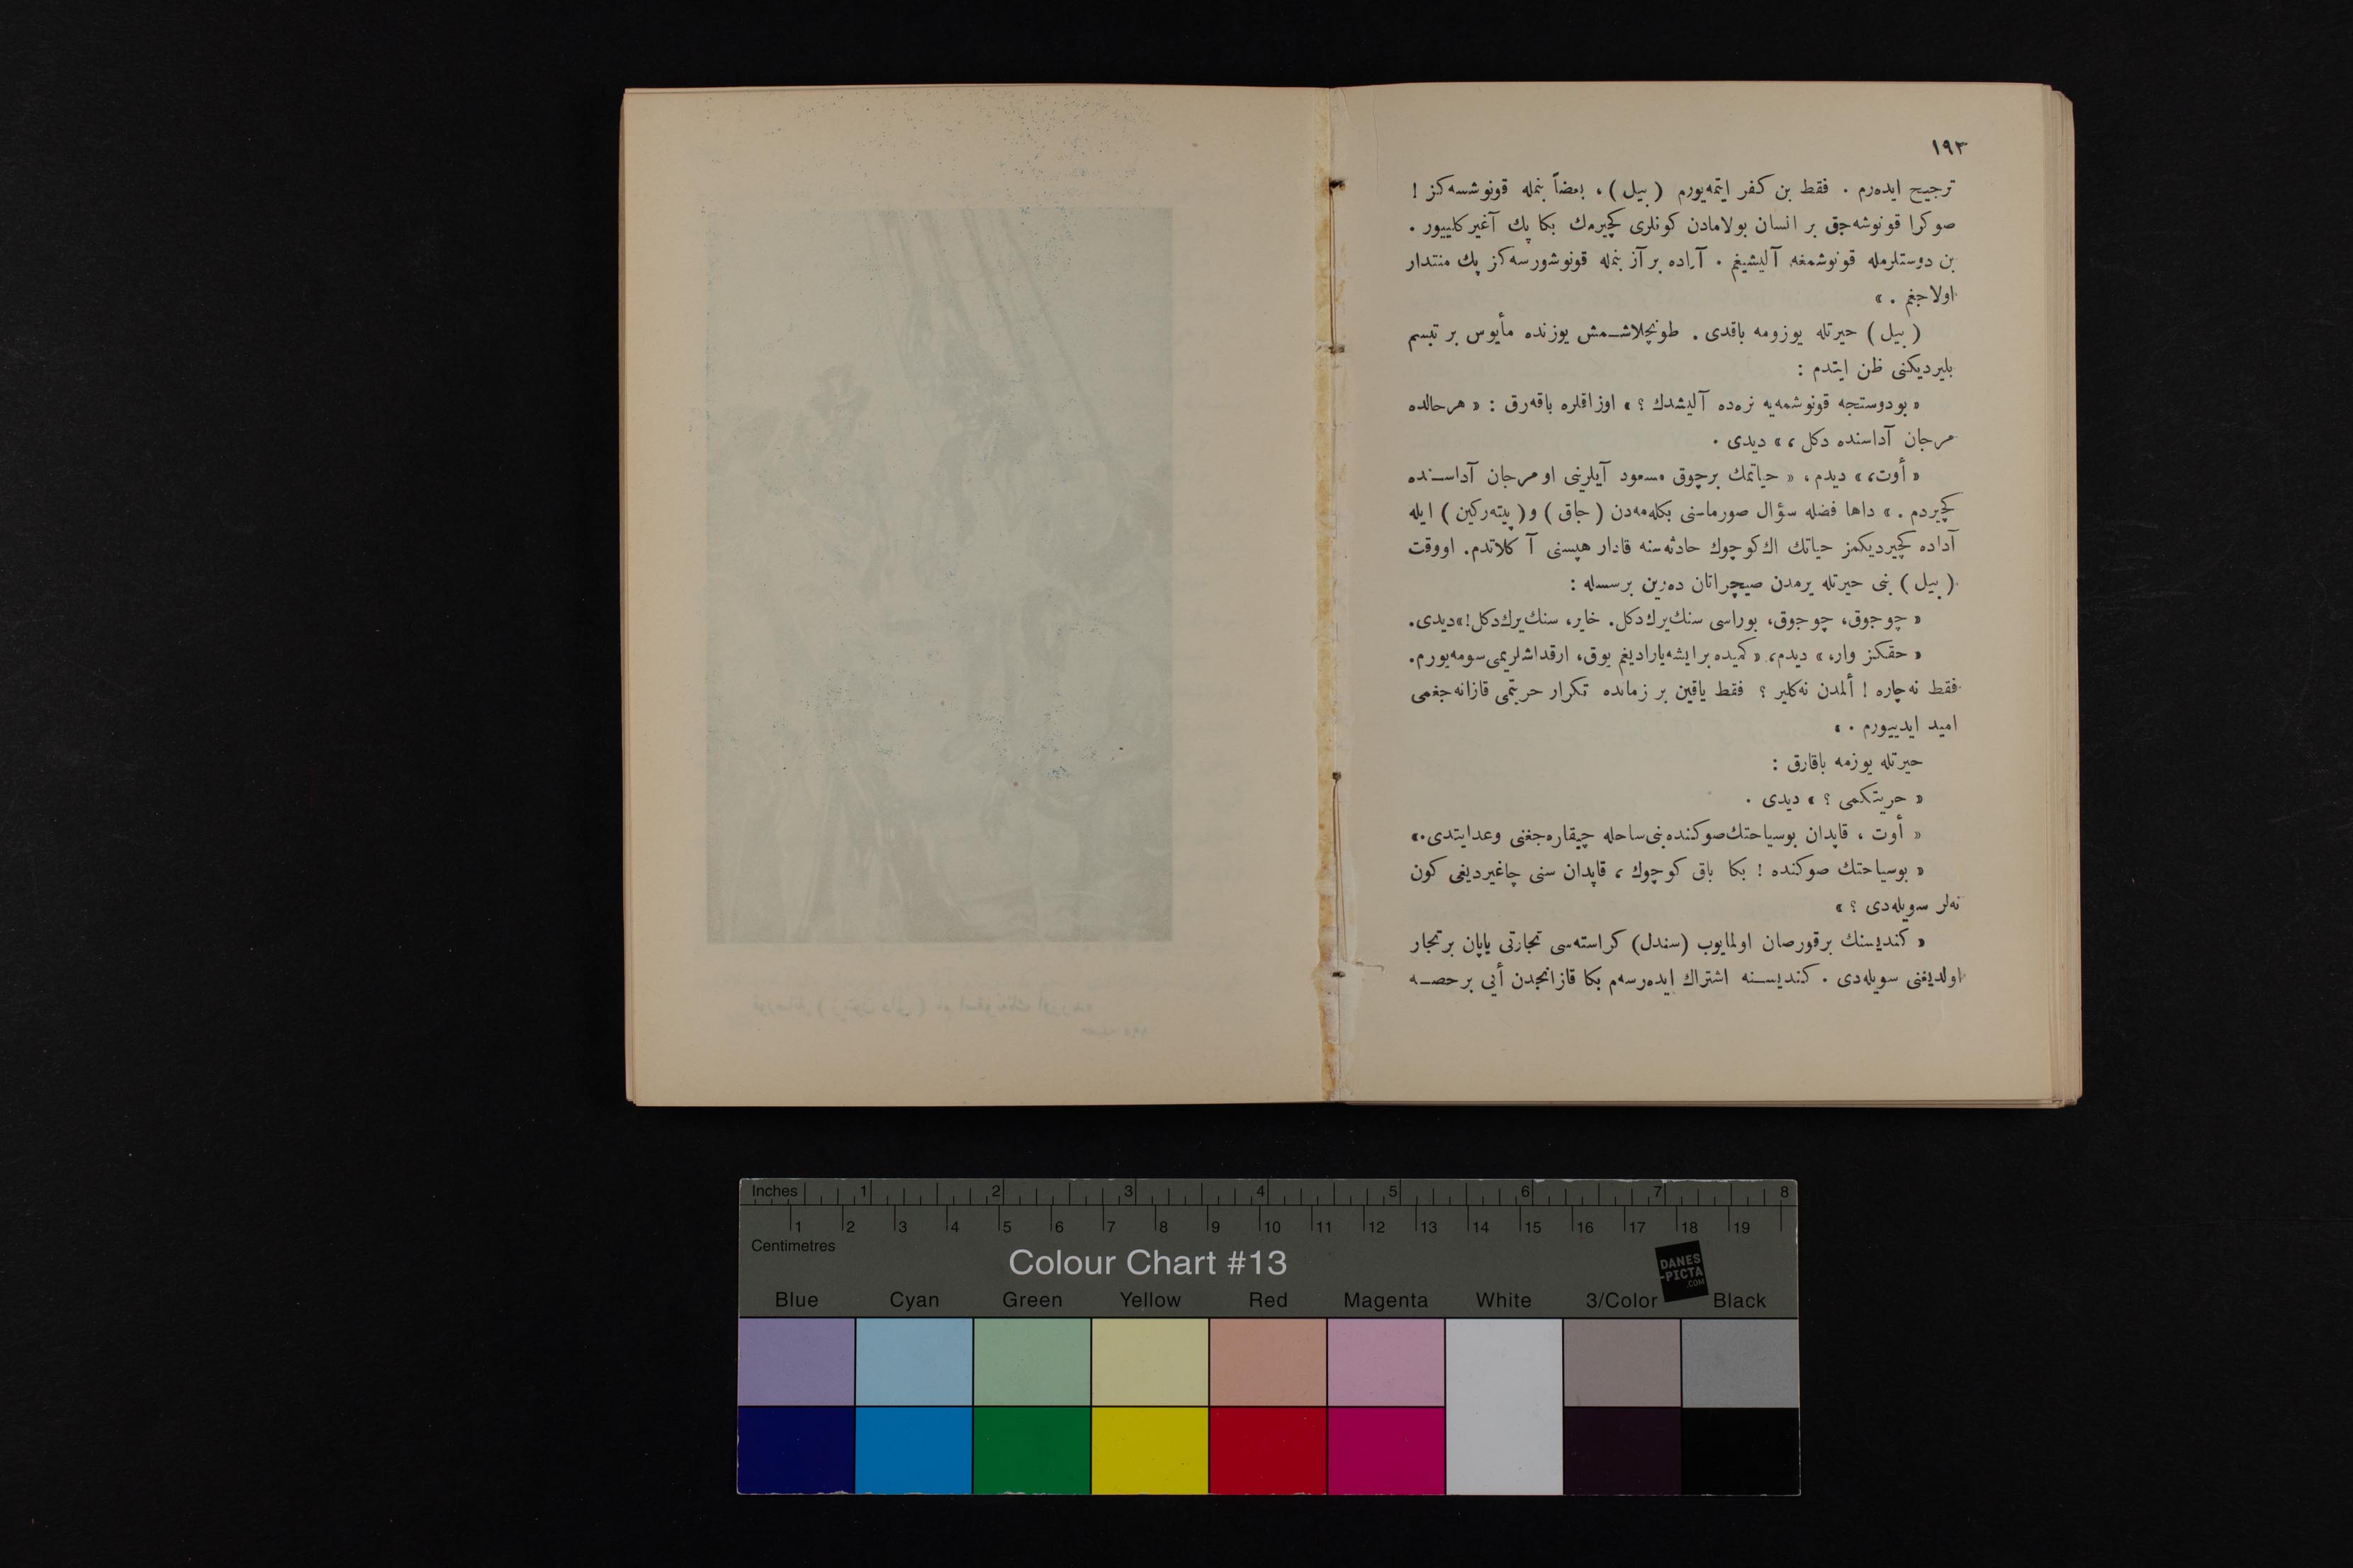 ١٩٣
ترجیح ایده‌رم . فقط بن كفر ایتمه‌یورم (بیل) ، بعضاً بنمله قونوشسه‌كز !
صوكرا قونوشه‌جق بر انسان بولامادن كونلری كچیرمك بكا پك آغیر كلییور .
بن دوستلرمله قونوشمغه آلیشیغم . آراده بر آز بنمله قونوشورسه‌كز پك منتدار
اولاجغم . »
(بیل) حیرتله یوزومه باقدی . طونچلاشـمش یوزنده مأیوس بر تبسم
بلیردیكنی ظن ایتدم :
« بودوستجه قونوشمه‌یه نره‌ده آلیشدك ؟ » اوزاقلره باقه‌رق : « هر حالده
مرجان آداسنده دكل ، » دیدی .
« أوت ، » دیدم ، « حیاتمك برچوق مسعود آیلرینی او مرجان آداسـنده
كچیردم . » داها فضله سؤال صورماسنی بكله‌مه‌دن (جاق) و (پیته‌ركین) ایله
آداده كچیردیكمز حیاتك اك كوچوك حادثه‌سنه قادار هپسنی آ كلاتدم. اووقت
(بیل) بنی حیرتله یرمدن صیچراتان ده‌رین بر سسله :
« چوجوق، چوجوق، بوراسی سنك یرك دكل. خایر، سنك یرك دكل! » دیدی.
« حقكز وار، » دیدم ، « كمیده بر ایشه یارادیغم یوق، ارقداشلریمی سومه‌یورم.
فقط نه‌چاره ! ألمدن نه‌كلیر ؟ فقط یاقین بر زمانده تكرار حریتمی قازانه‌جغمی
امید ایدییورم . »
حیرتله یوزمه باقارق :
« حریتكمی ؟ » دیدی .
« أوت ، قاپدان بوسیاحتك صوكنده بنی ساحله چیقاره‌جغنی وعد ایتدی. »
« بوسیاحتك صوكنده ! بكا باق كوچوك ، قاپدان سنی چاغیردیغی كون
نه‌لر سویله‌دی ؟ »
« كندیسنك برقورصان اولمایوب (سندل) كراسته‌سی تجارتی یاپان بر تجار
اولدیغنی سویله‌دی . كندیسـنه اشتراك ایده‌رسه‌م بكا قازانجدن أیی بر حصـه
Inches 1 2 3 4 5 6 7 8
1 2 3 4 5 6 7 8 9 10 11 12 13 14 15 16 17 18 19
Centimetres
Colour Chart #13
DANES
-PICTA
.COM
Blue Cyan Green Yellow Red Magenta White 3/Color Black